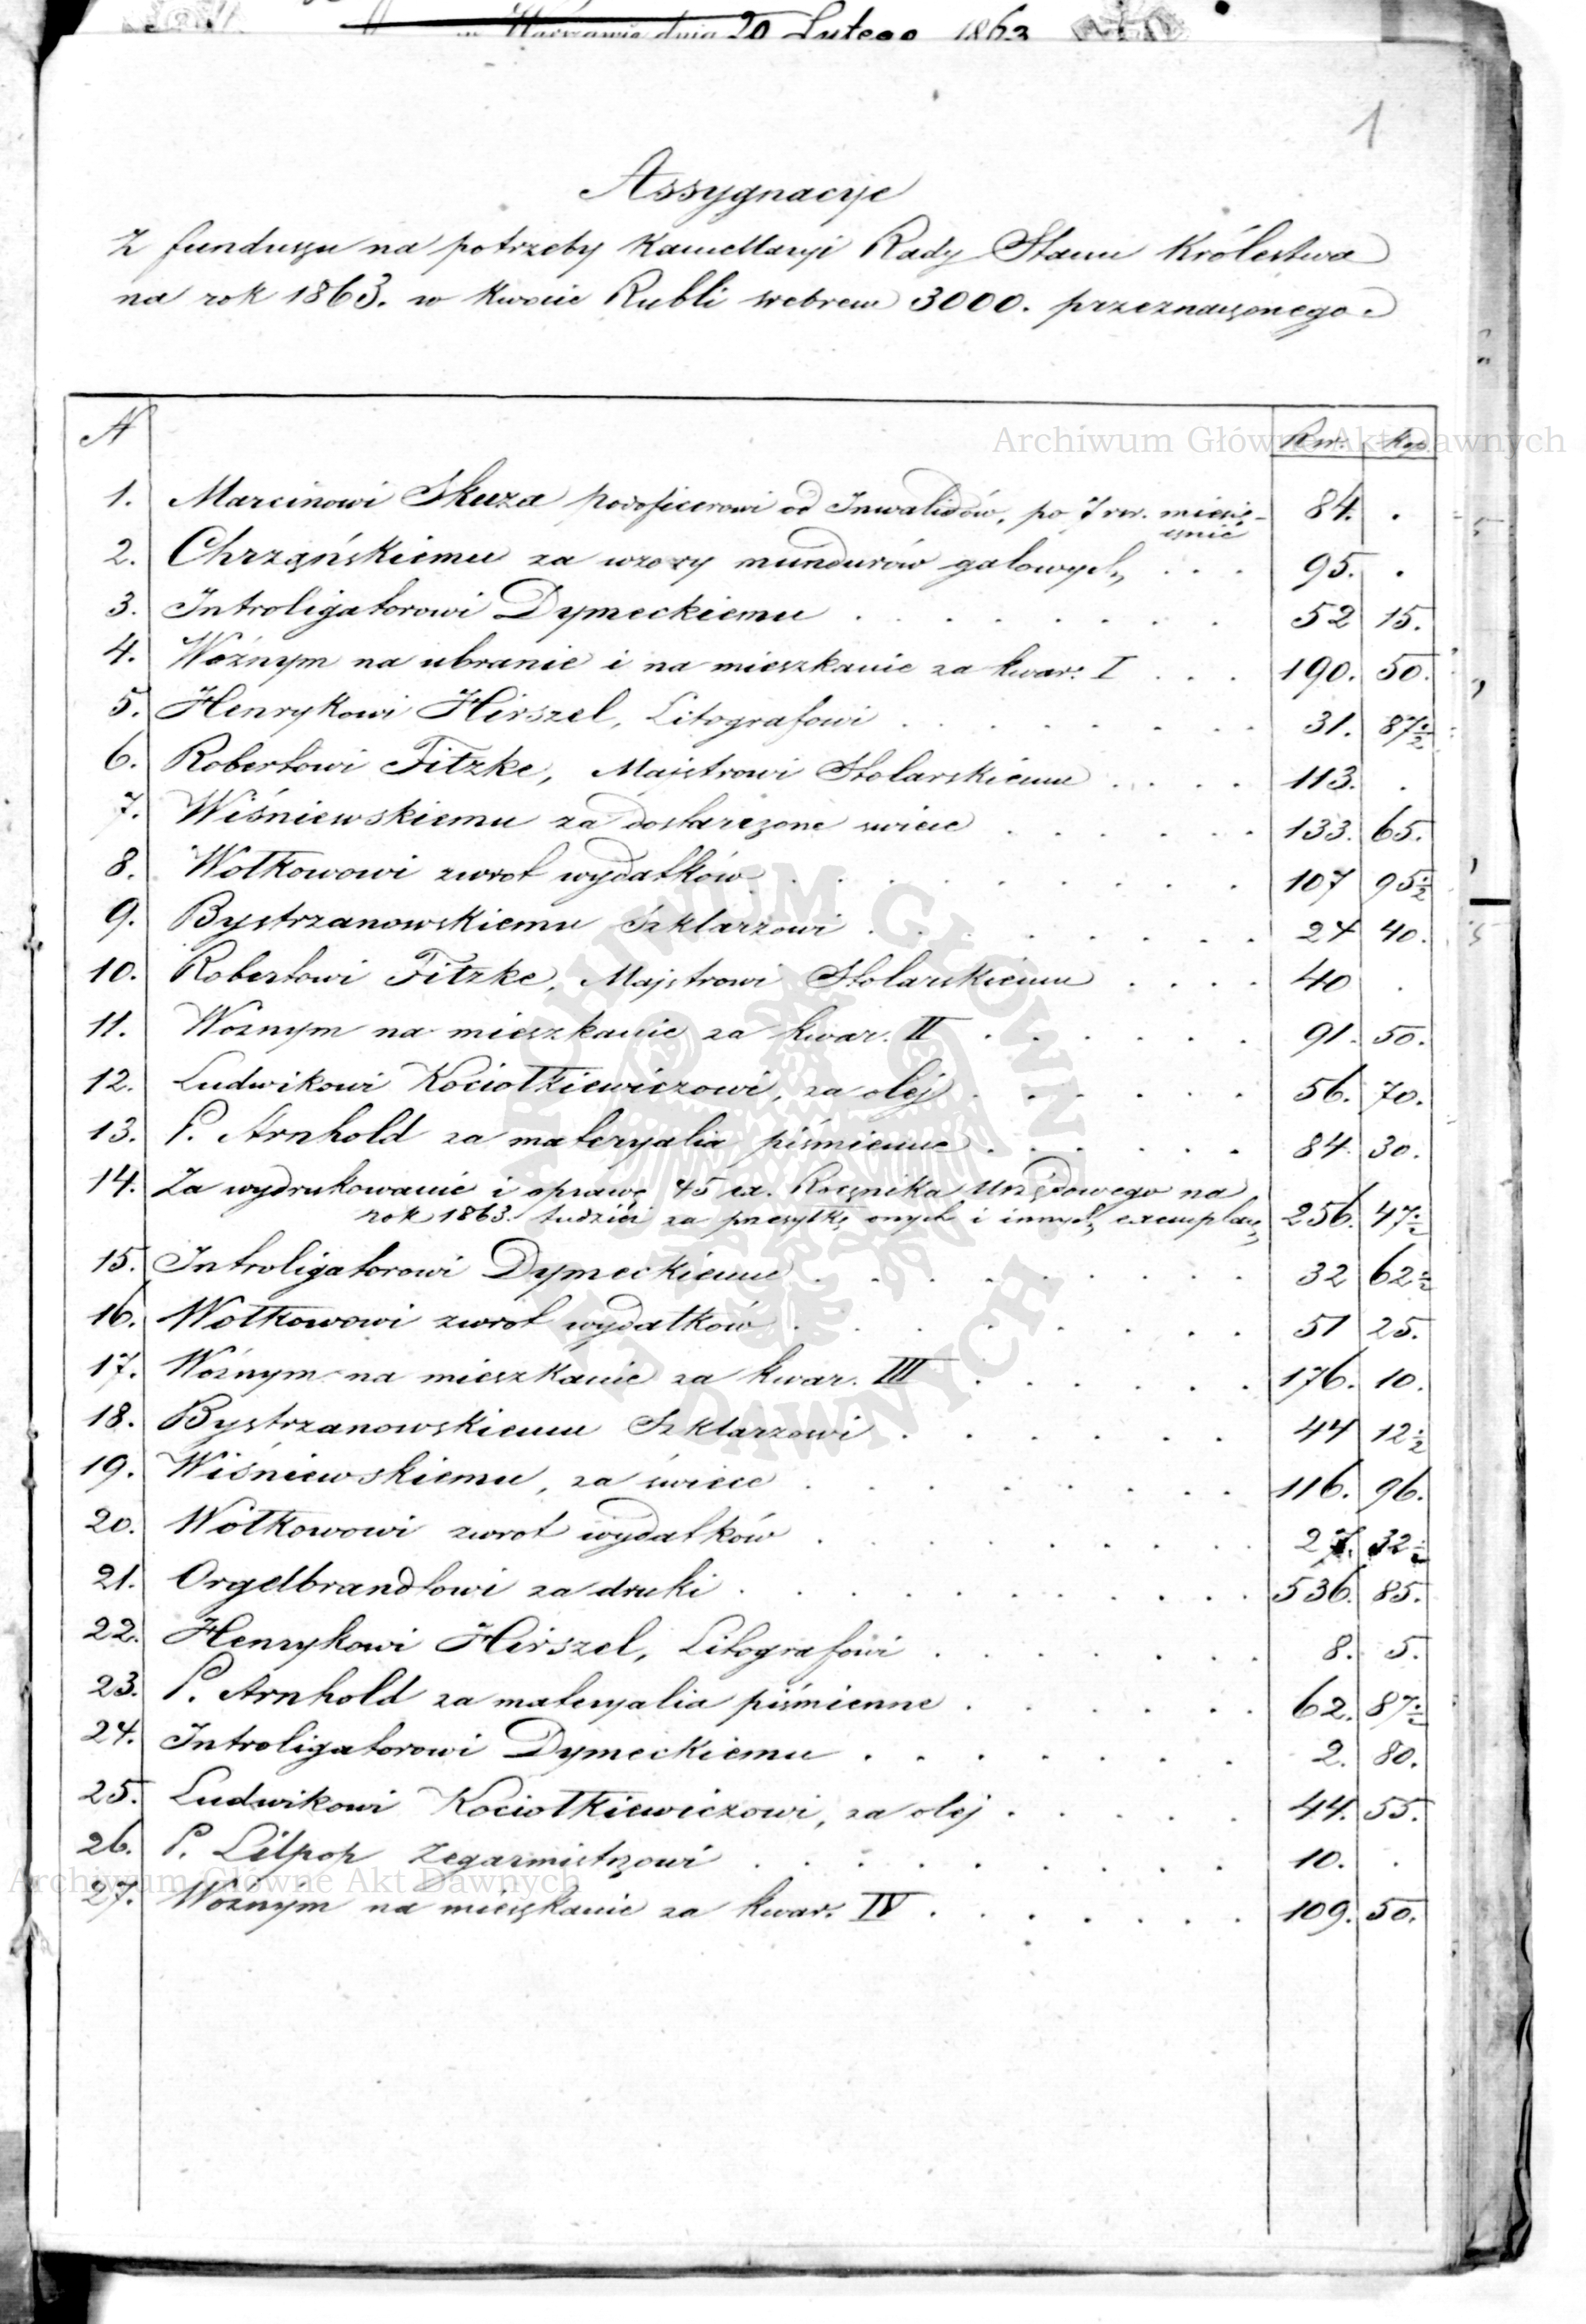 w Warszawie dnia 20 Lutego 1863
1
Assygnacye
Z funduszu na potrzeby Kancellaryi Rady Stanu Królestwa
na rok 1863. w kwocie Rubli srebrem 3000. przeznaczonego.
N Rsr. Kop
1. Marcinowi Skuza podoficerowi od Inwalidów, po 7 rsr. miesię- 84. .
cznie
2. Chrząńskiemu za wzory mundurów galowych . . . 95. .
3. Introligatorowi Dymeckiemu . . . . . . . 52 15.
4. Woźnym na ubranie i na mieszkanie za kwar. I . . . 190. 50.
5. Henrykowi Hirszel, Litografowi . . . . . . . 31. 87½
6. Robertowi Fitzke, Majstrowi Stolarskiemu . . . . 113. .
7. Wiśniewskiemu za dostarczone świece . . . . . . 133. 65.
8. Wołkowowi zwrot wydatków . . . . . . . . . 107 95½
9. Bystrzanowskiemu Szklarzowi . . . . . . . . 24 40.
10. Robertowi Fitzke, Majstrowi Stolarskiemu . . . . 40 .
11. Woznym na mieszkanie za kwar. II . . . . . . 91. 50.
12. Ludwikowi Kociołkiewiczowi, za olej . . . . . . 56. 70.
13. P. Arnhold za materyalia piśmienne . . . . . . 84. 30.
14. Za wydrukowanie i oprawę 45 ex. Rocznika Urzędowego na
rok 1863. tudzież za przesyłkę onych i innych exemplarzy 256. 47½
15. Introligatorowi Dymeckiemu . . . . . . . . 32 62½
16. Wołkowowi zwrot wydatków . . . . . . . . 51 25.
17. Woźnym na mieszkanie za kwar. III . . . . . . 176. 10.
18. Bystrzanowskiemu Szklarzowi . . . . . . 44 12½
19. Wiśniewskiemu, za świece . . . . . . . . 116. 96.
20. Wołkowowi zwrot wydatków . . . . . . . . 27. 32½
21. Orgelbrandtowi za druki . . . . . . . . . . 536. 85.
22. Henrykowi Hirszel, Litografowi . . . . . . . 8. 5.
23. P. Arnhold za materyalia piśmienne . . . . . . 62. 87½
24. Introligatorowi Dymeckiemu . . . . . . . 2. 80.
25. Ludwikowi Kociołkiewiczowi, za olej . . . . . 44. 55.
26. P. Lilpop Zegarmistrzowi . . . . . . . . . 10. .
27. Woźnym na mieszkanie za kwar. IV . . . . . . . 109. 50.
Archiwum Główne Akt Dawnych
Archiwum Główne Akt Dawnych
ARCHIWUM GŁÓWNE AKT DAWNYCH